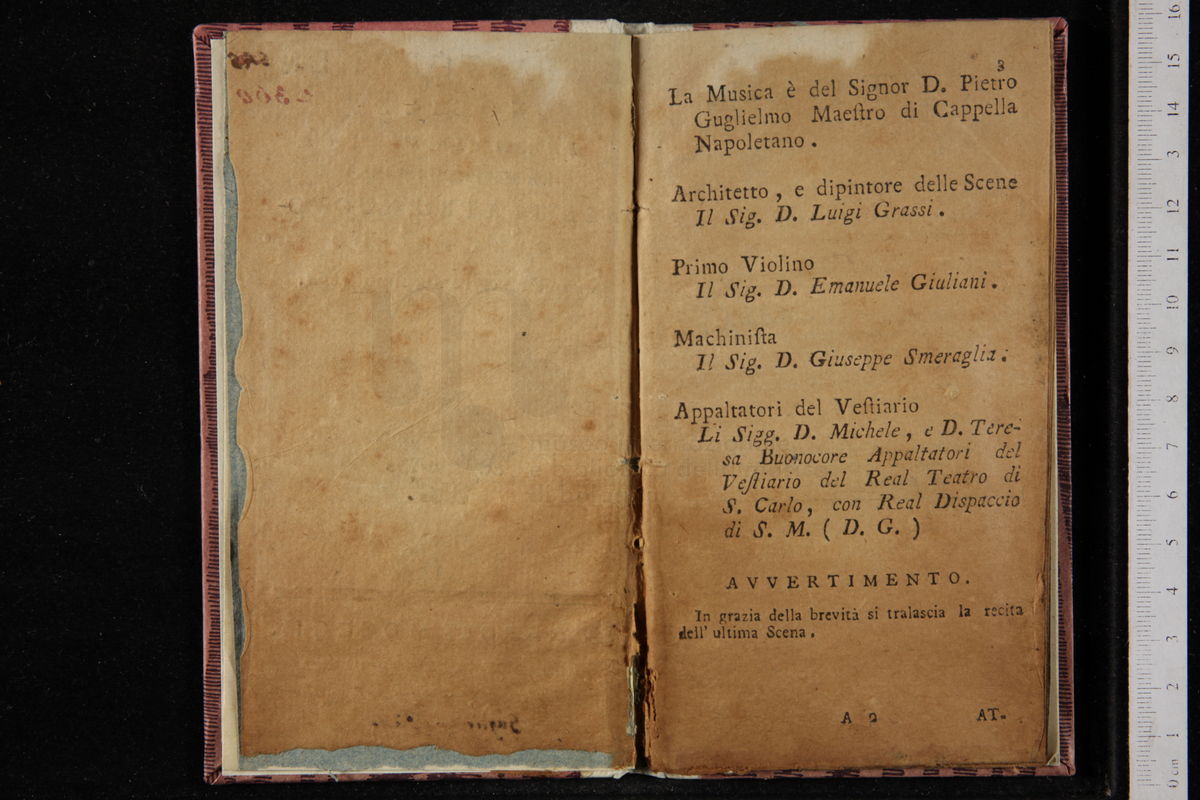 3
La Musica è del Signor D. Pietro
Guglielmo Maeſtro di Cappella
Napoletano.
Architetto, e dipintore delle Scene
Il Sig. D. Luigi Grassi.
Primo Violino
Il Sig. D. Emanuele Giuliani.
Machiniſta
Il Sig. D. Giuseppe Smeraglia.
Appaltatori del Veſtiario
Li Sigg. D. Michele, e D. Tere-
sa Buonocore Appaltatori del
Veſtiario del Real Teatro di
S. Carlo, con Real Dispaccio
di S. M. ( D. G. )
AVVERTIMENTO.
In grazia della brevità si tralascia la recita
dell' ultima Scena.
A 2 AT-
16
15
14
13
12
11
10
9
8
7
6
5
4
3
2
1
0 cm